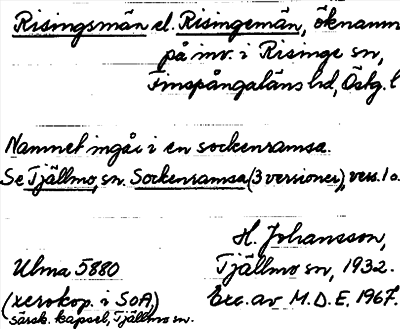 Risingsmän el. Risingemän, öknamn
på inv. i Risinge sn,
Finspångaläns hd, Östg. l
Namnet ingår i en sockenramsa.
Se Tjällmo, sn. Sockenramsa (3 versioner), vers. 1 o.
H. Johansson,
Ulma 5880
Tjällmo sn, 1932.
(xerokop. i SOA,
särsk. kapsel, Tjällmo sn.
Exc. av M.D.E. 1967.